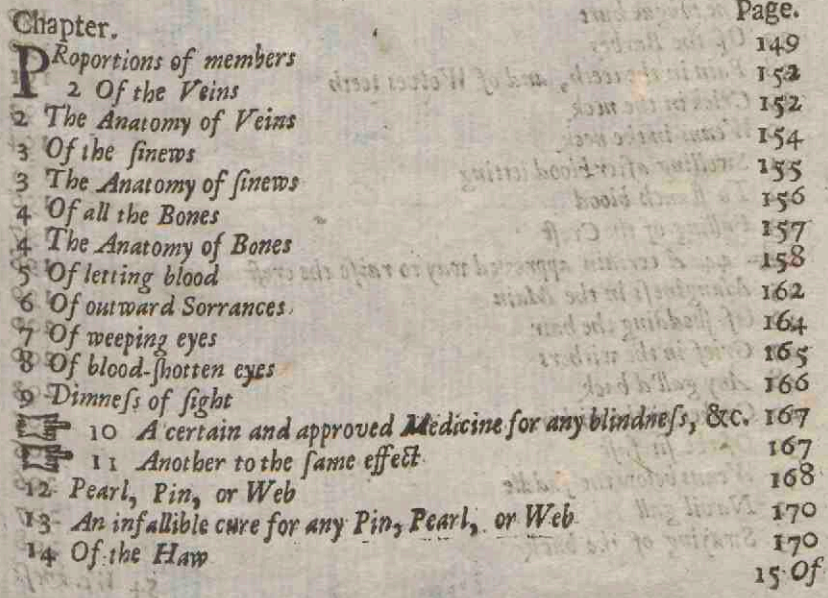 Chapter. Page.
PRoportions of members 149
2 Of the Veins 152
2 The Anatomy of Veins 152
3 Of the ſinews 154
3 The Anatomy of ſinews 155
4 Of all the Bones 156
4 The Anatomy of Bones 157
5 Of letting blood 158
6 Of outward Sorrances 162
7 Of weeping eyes 164
8 Of blood-ſhotten eyes 165
9 Dimneſs of ſight 166
10 A certain and approved Medicine for any blindneſs, &c. 167
11 Another to the ſame effect 167
12 Pearl, Pin, or Web 168
13 An infallible cure for any Pin, Pearl, or Web 170
14 Of the Haw 170
15 Of